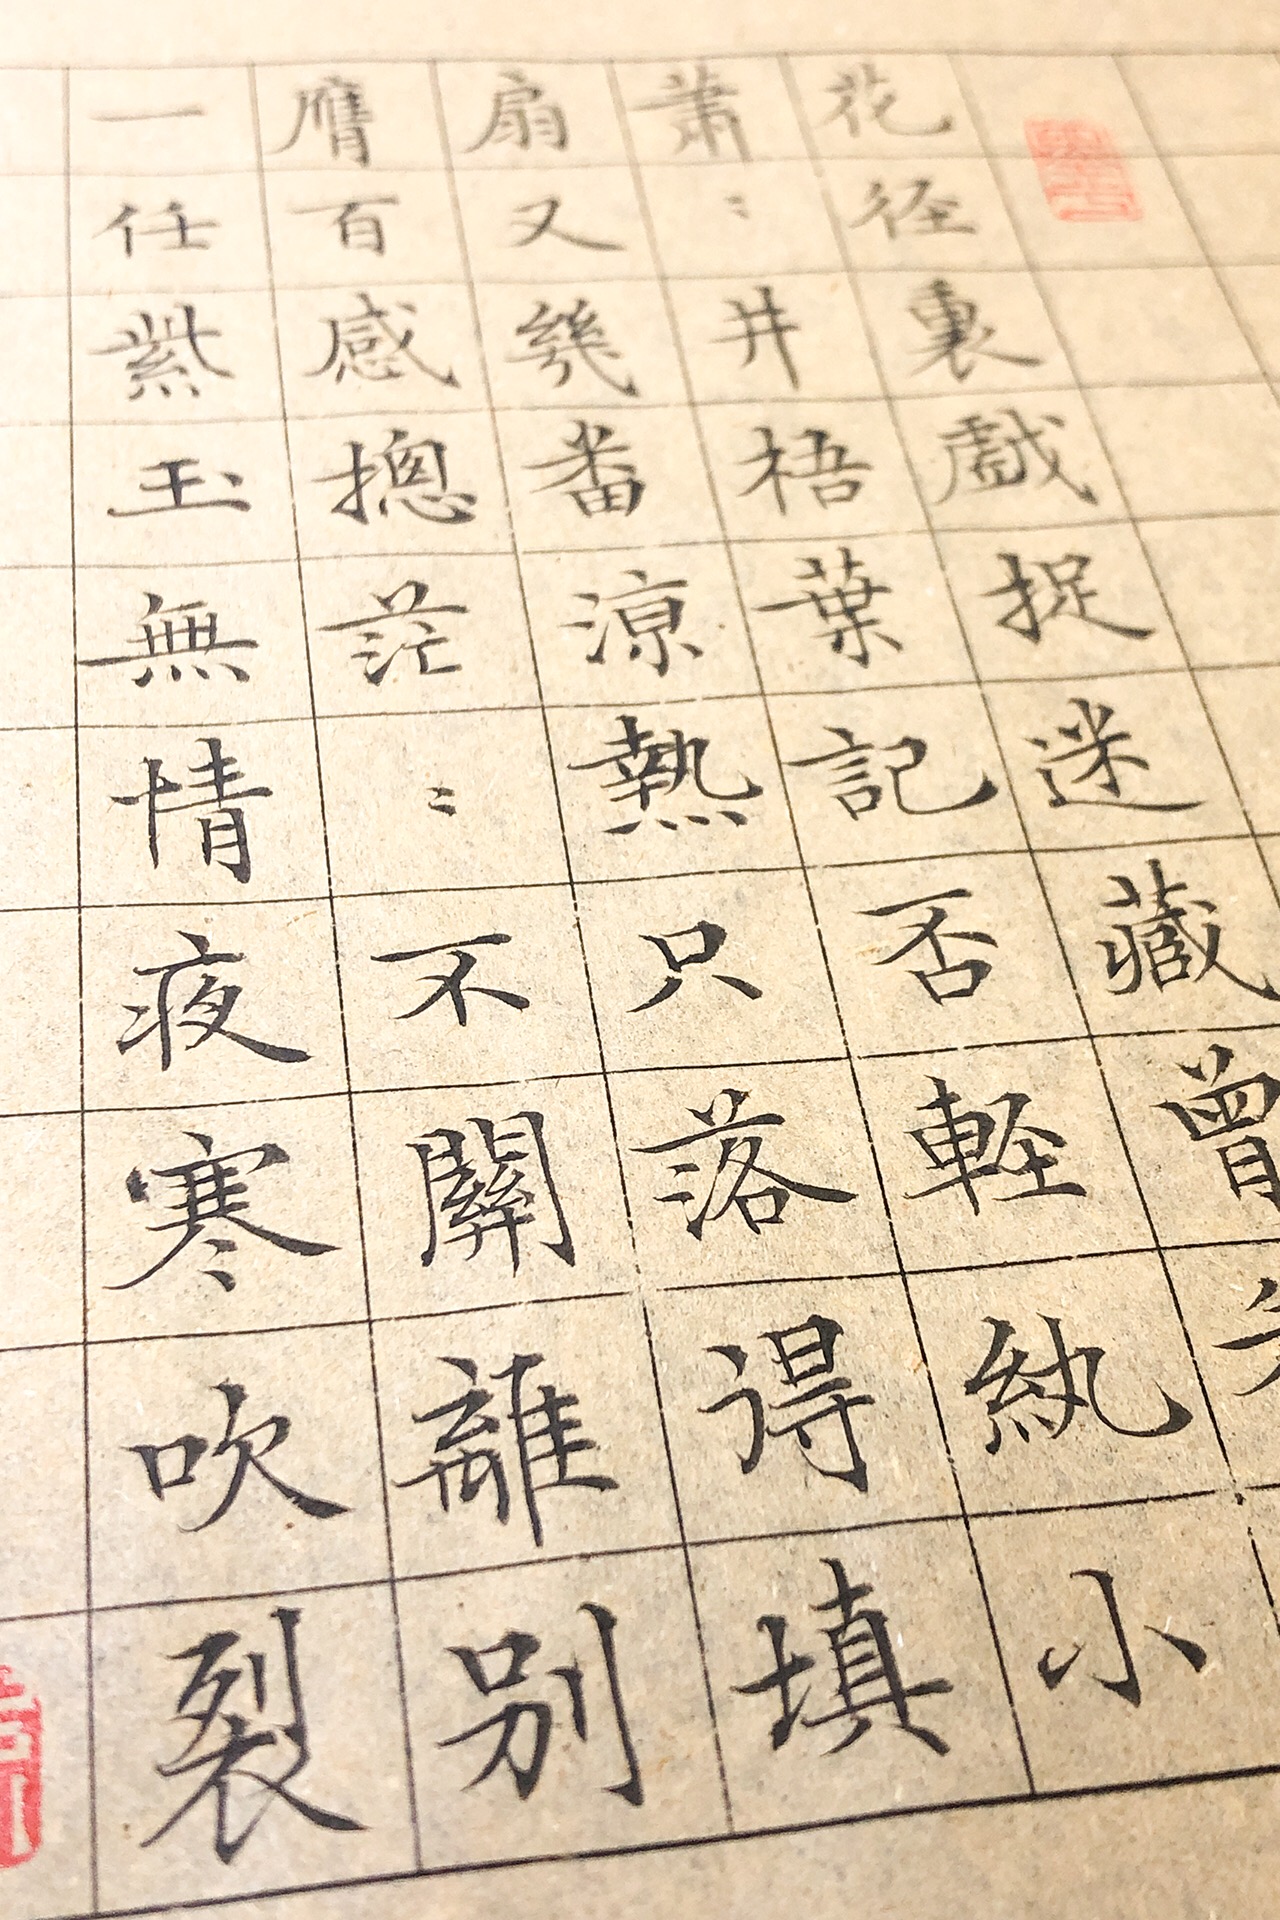 花径裏戲捉迷藏曾
蕭〻井梧葉記否軽紈小
扇又幾番涼熱只落得填
膺百感摠茫〻不關離別
一任紫玉無情夜寒吹裂